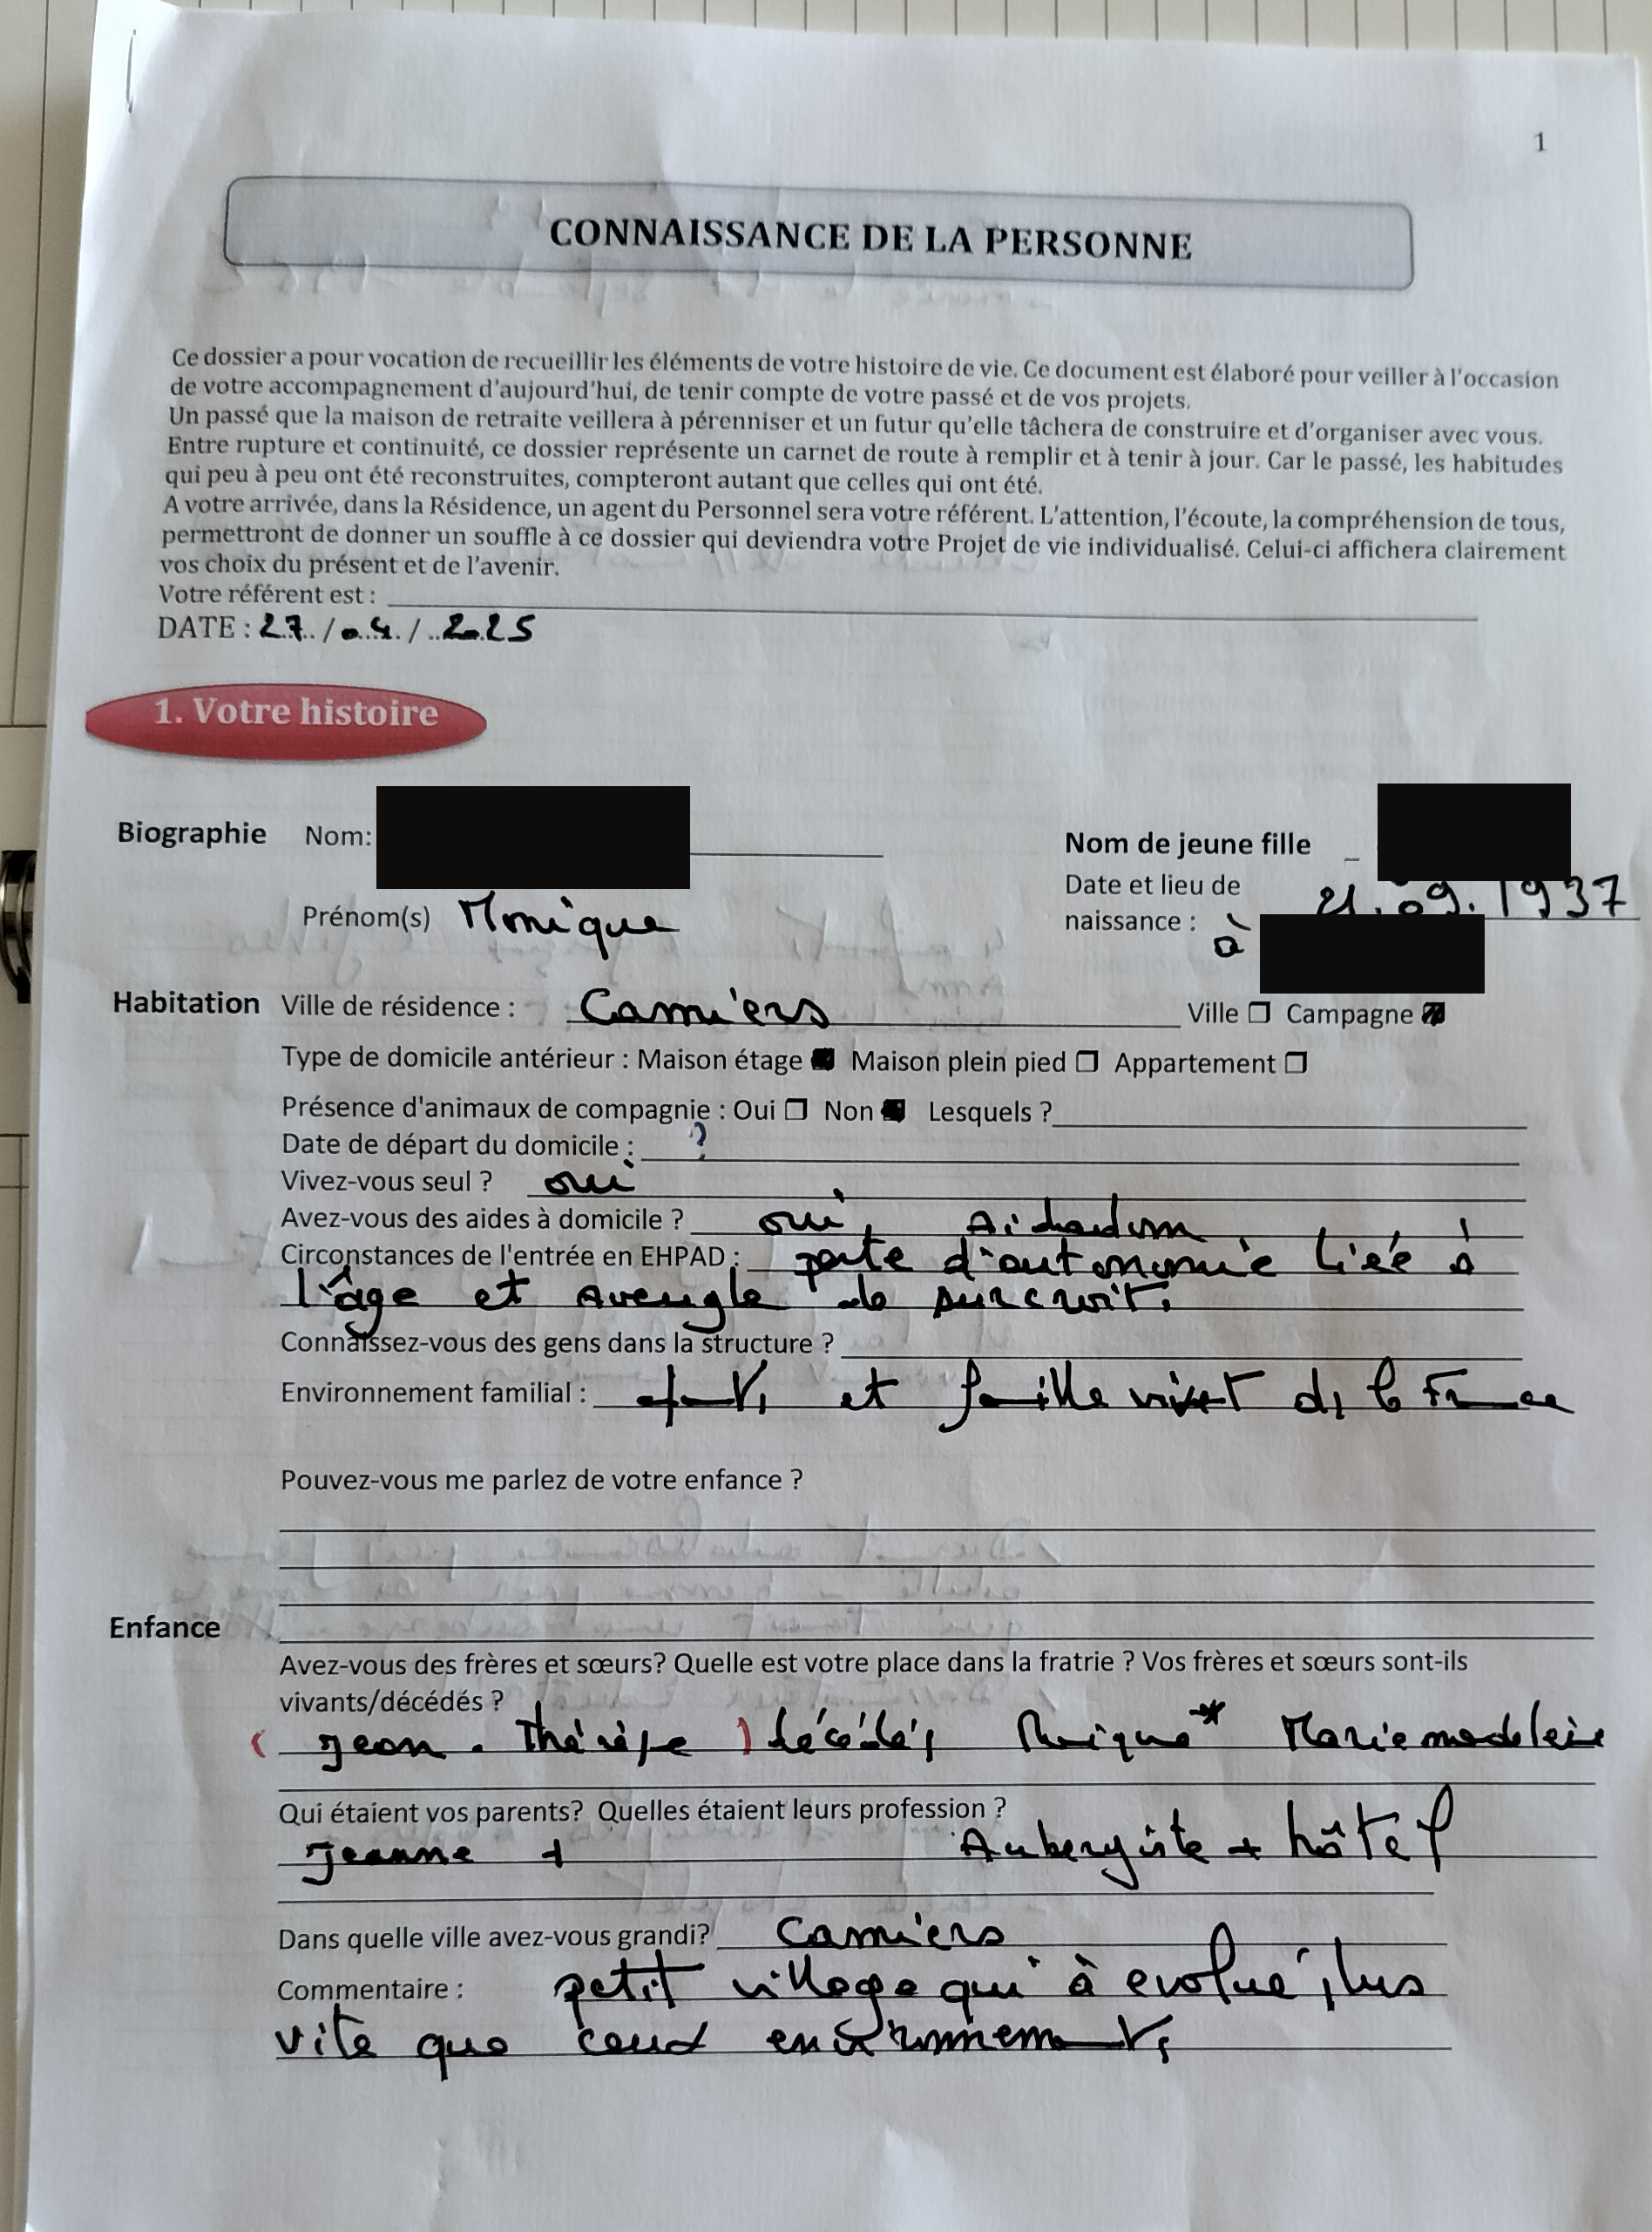 1
CONNAISSANCE DE LA PERSONNE
Ce dossier a pour vocation de recueillir les éléments de votre histoire de vie. Ce document est élaboré pour veiller à l'occasion
de votre accompagnement d'aujourd'hui, de tenir compte de votre passé et de vos projets.
Un passé que la maison de retraite veillera à pérenniser et un futur qu'elle tâchera de construire et d'organiser avec vous.
Entre rupture et continuité, ce dossier représente un carnet de route à remplir et à tenir à jour. Car le passé, les habitudes
qui peu à peu ont été reconstruites, compteront autant que celles qui ont été.
A votre arrivée, dans la Résidence, un agent du Personnel sera votre référent. L'attention, l'écoute, la compréhension de tous,
permettront de donner un souffle à ce dossier qui deviendra votre Projet de vie individualisé. Celui-ci affichera clairement
vos choix du présent et de l'avenir.
Votre référent est :
DATE : 27 / 04 / 2025
1. Votre histoire
Biographie Nom: Nom de jeune fille
Date et lieu de 21.09.1937
Prénom(s) Monique naissance : à
Habitation Ville de résidence : Camiers Ville ☐ Campagne ■
Type de domicile antérieur : Maison étage ■ Maison plein pied ☐ Appartement ☐
Présence d'animaux de compagnie : Oui ☐ Non ■ Lesquels ?
Date de départ du domicile : ?
Vivez-vous seul ? oui
Avez-vous des aides à domicile ? oui,
Circonstances de l'entrée en EHPAD : perte d'autonomie liée à
l'âge et aveugle de surcroit.
Connaissez-vous des gens dans la structure ?
Environnement familial : et famille
Pouvez-vous me parlez de votre enfance ?
Enfance
Avez-vous des frères et sœurs? Quelle est votre place dans la fratrie ? Vos frères et sœurs sont-ils
vivants/décédés ?
( Jean . Thérèse ) décédés Monique* Marie madeleine
Qui étaient vos parents? Quelles étaient leurs profession ?
Jeanne + Aubergiste + hôtel
Dans quelle ville avez-vous grandi? Camiers
Commentaire : petit village qui à evolué plus
vite que ceux